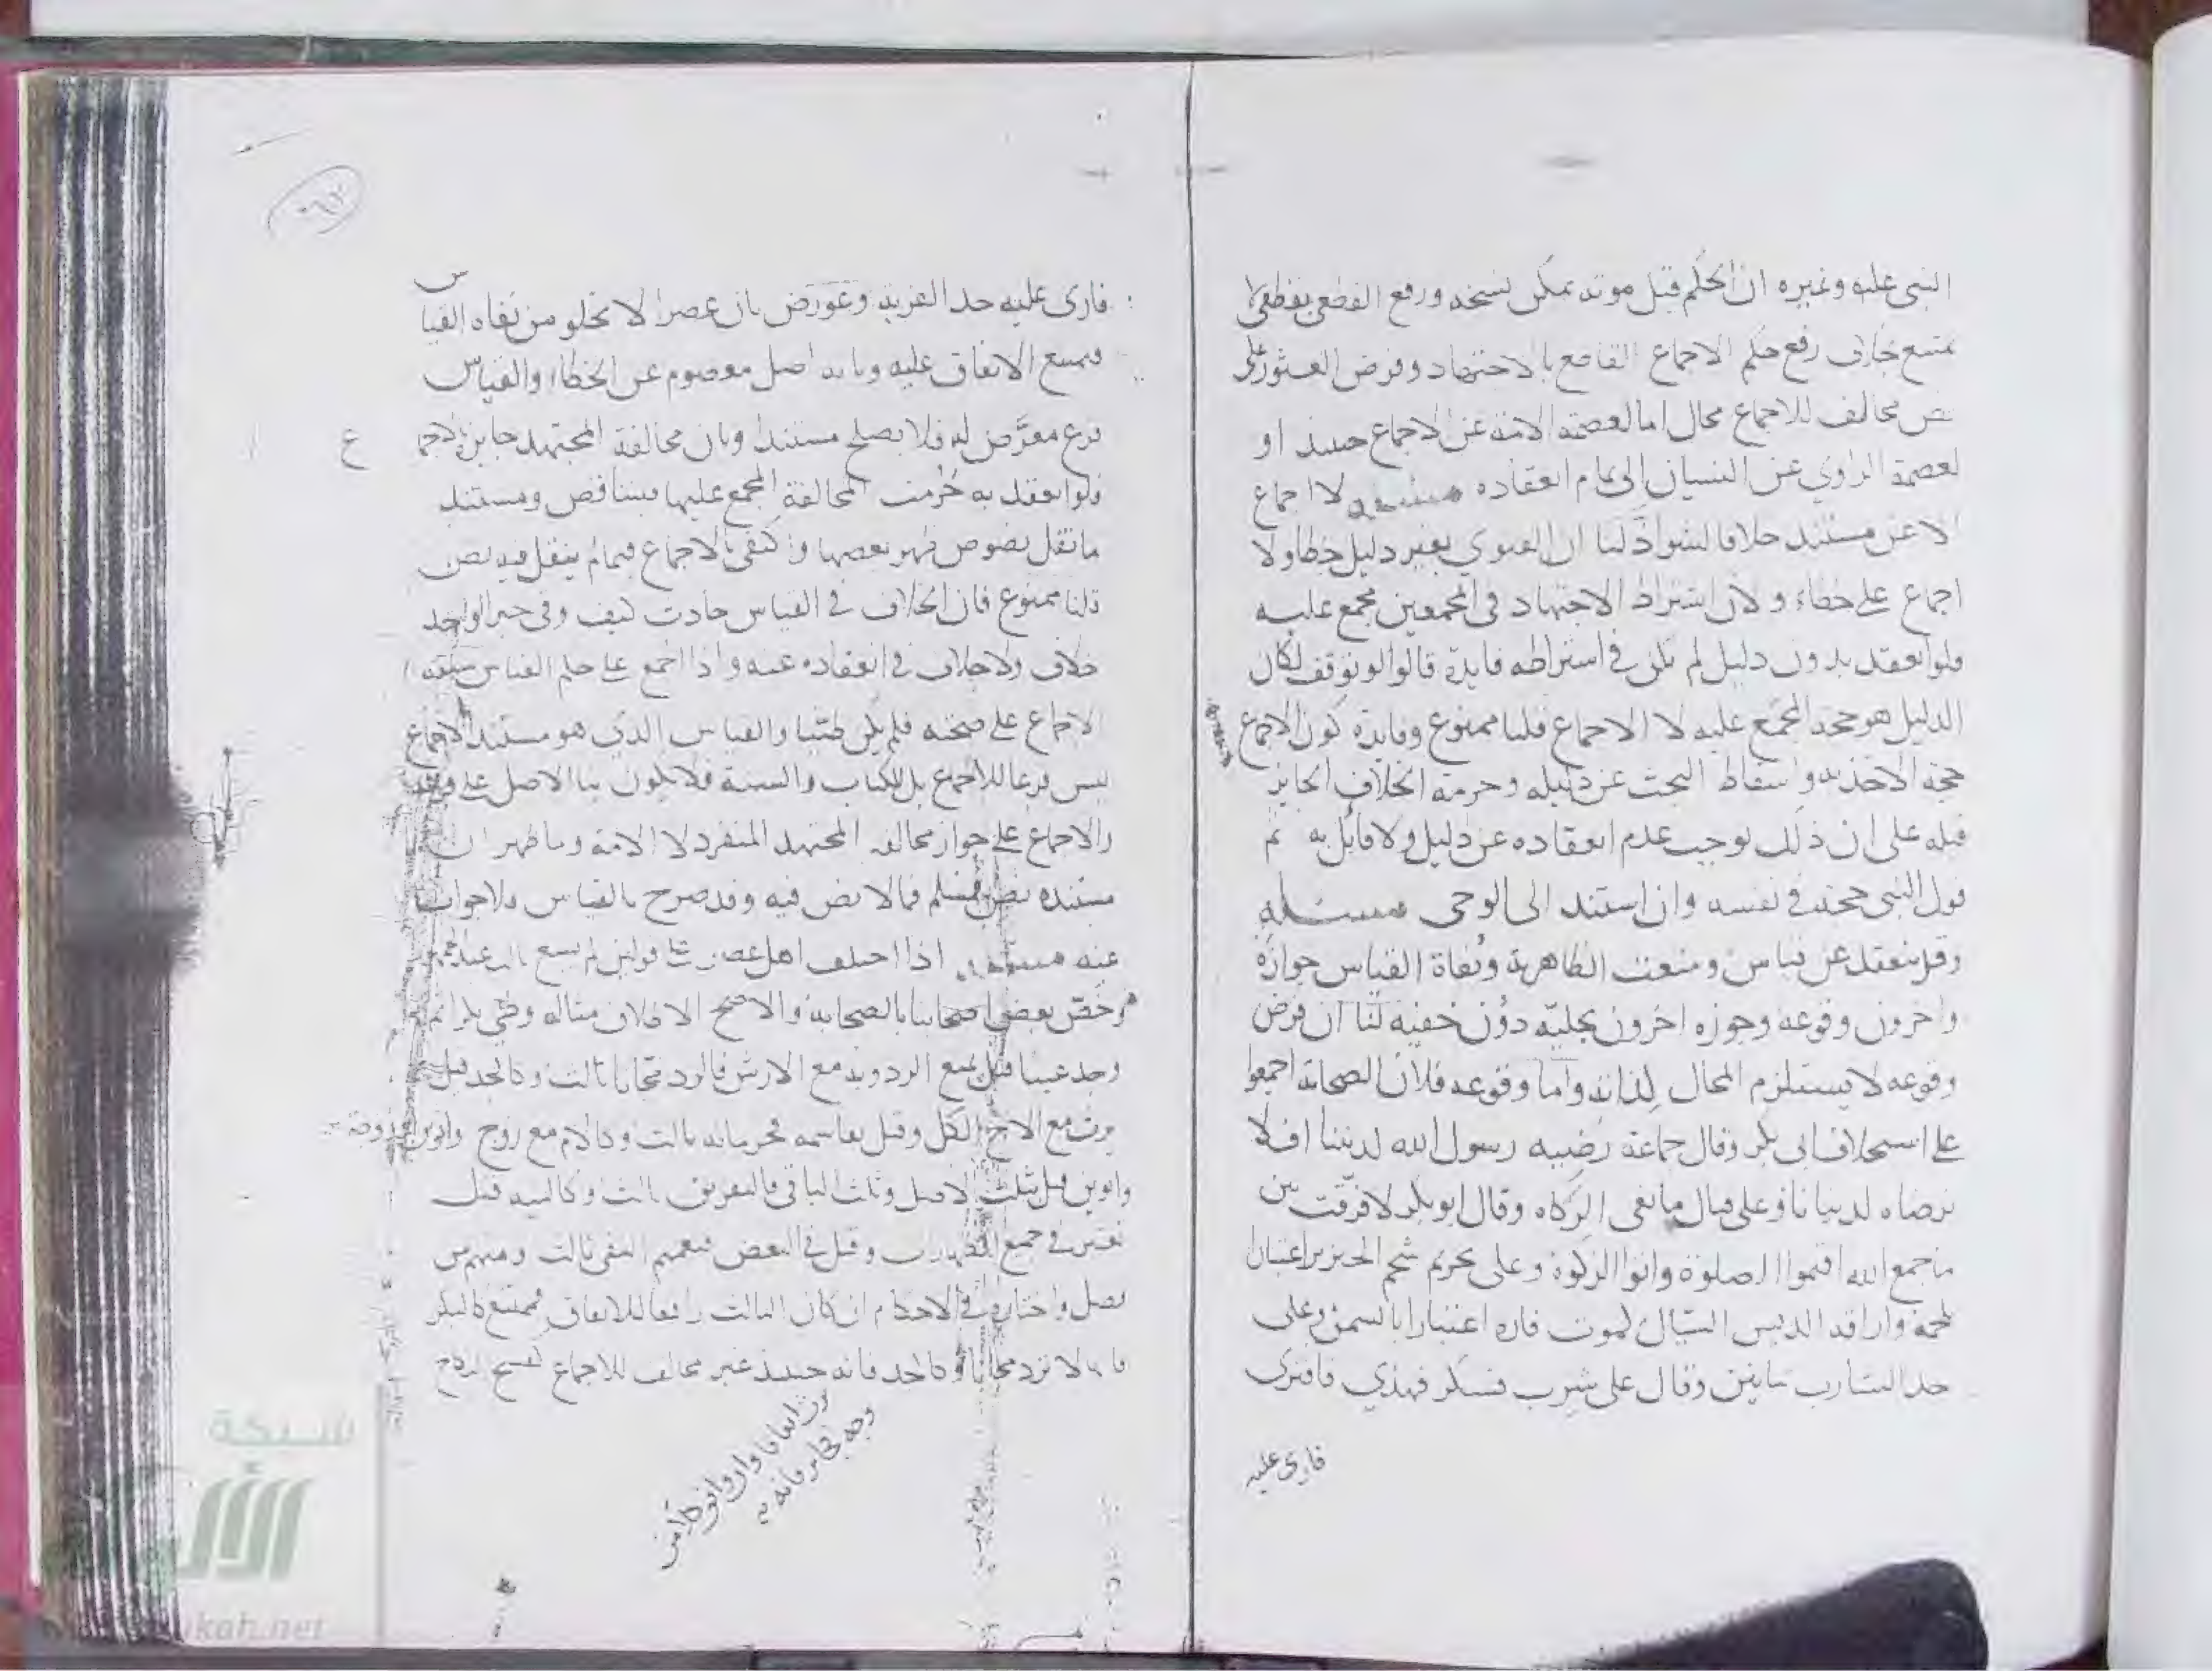 النبى عليه وغيره ان الحكم قبل موته يمكن نسخه ورفع القطعى بقطعى لا
يمتنع بخلاف رفع حكم الاجماع القاطع بالاجتهاد وفرض العثور على
نص مخالف للاجماع محال اما لعصمة الامة عن الاجماع حينئذ او
لعصمة الراوي عن النسيان الى تمام انعقاده مسئلة لا اجماع
الا عن مستند خلافا لشواذ لنا ان الفتوي بغير دليل خطا ولا
اجماع على خطاء ولان اشتراط الاجتهاد فى المجمعين مجمع عليه
فلو انعقد بدون دليل لم تكن في اشتراطه فايدة قالوا لو توقف لكان
الدليل هو حجة المجمع عليه لا الاجماع قلنا ممنوع وفايدة كون الاجماع
حجة الاخذ به واسقاط البحث عن دليله وحرمة الخلاف الجايز
قبله على ان ذلك يوجب عدم انعقاده عن دليل ولا قايل به ثم
قول النبى حجة في نفسه وان استند الى الوحى مسئلة
وقد ينعقد عن قياس ومنعت الظاهرية ونفاة القياس جوازه
واخرون وقوعه وجوزه اخرون بجليه دون خفيه لنا ان فرض
وقوعه لا يستلزم المحال لذاته واما وقوعه فلان الصحابة اجمعوا
على استخلاف ابى بكر وقال جماعة رضيه رسول الله لديننا افلا
نرضاه لدنيانا وعلى قتال مانعى الزكاه وقال ابو بكر لا فرقت بين
ما جمع الله اقيموا الصلوة واتوا الزكوة وعلى تحريم شحم الخنزير اعتبارا
بلحمه واراقة الدبس السيال لموت فاره اعتبارا بالسمن وعلى
حد الشارب ثمانين وقال على شرب فسكر فهذي فافترى
فارى عليه
فارى عليه حد الفرية وعورض بان عصرا لا تخلو من نفاه القياس
فيمتنع الاتفاق عليه وبانه اصل معصوم عن الخطاء والقياس
فرع معرض له فلا يصلح مستندا وبان مخالفة المجتهد جايزة بالاجماع
فلو انعقد به حرمت المخالفة المجمع عليها فيتناقض ومستند
ما نقل نصوص ظهر بعضها واكتفى بالاجماع فيما لم ينقل فيه نص
قلنا ممنوع فان الخلاف في القياس حادث كيف وفى خبر الواحد
خلاف ولا خلاف في انعقاده عنه واذا اجمع على حكم القياس
الاجماع على صحته فلم يكن ظنيا والقياس الذى هو مستند الاجماع
ليس فرعا للاجماع بل للكتاب والسنة فلا يكون بنا الاصل على فرعه
والاجماع على جواز مخالفة المجتهد المنفرد لا الامة وما ظهر ان
مستنده نص فمسلم فما لا نص فيه وقد صرح بالقياس فلا جواب
عنه مسئلة اذا اختلف اهل عصر على قولين لم يسع
وخص بعض اصحابنا بالصحابة والاصح الاطلاق مثاله وطى بكرا ثم
وجد عيبا قيل يمنع الرد وقيل مع الارش فالرد مجانا ثالث وكالجد قيل
يرث مع الاخ الكل وقيل يقاسمه فحرمانه ثالث وكالام مع زوج وابوين
وابوين قيل ثلث الاصل وثلث الباقى فالتفريق ثالث وكالنيه قيل
تعتبر في جميع الطهارات وقيل في البعض فتعميم النفى ثالث ومنهم من
فصل واختاره في الاحكام ان كان الثالث رافعا للاتفاق فممتنع كالبكر
فانها لا ترد مجانا وكالجد فانه حينئذ غير مخالف للاجماع